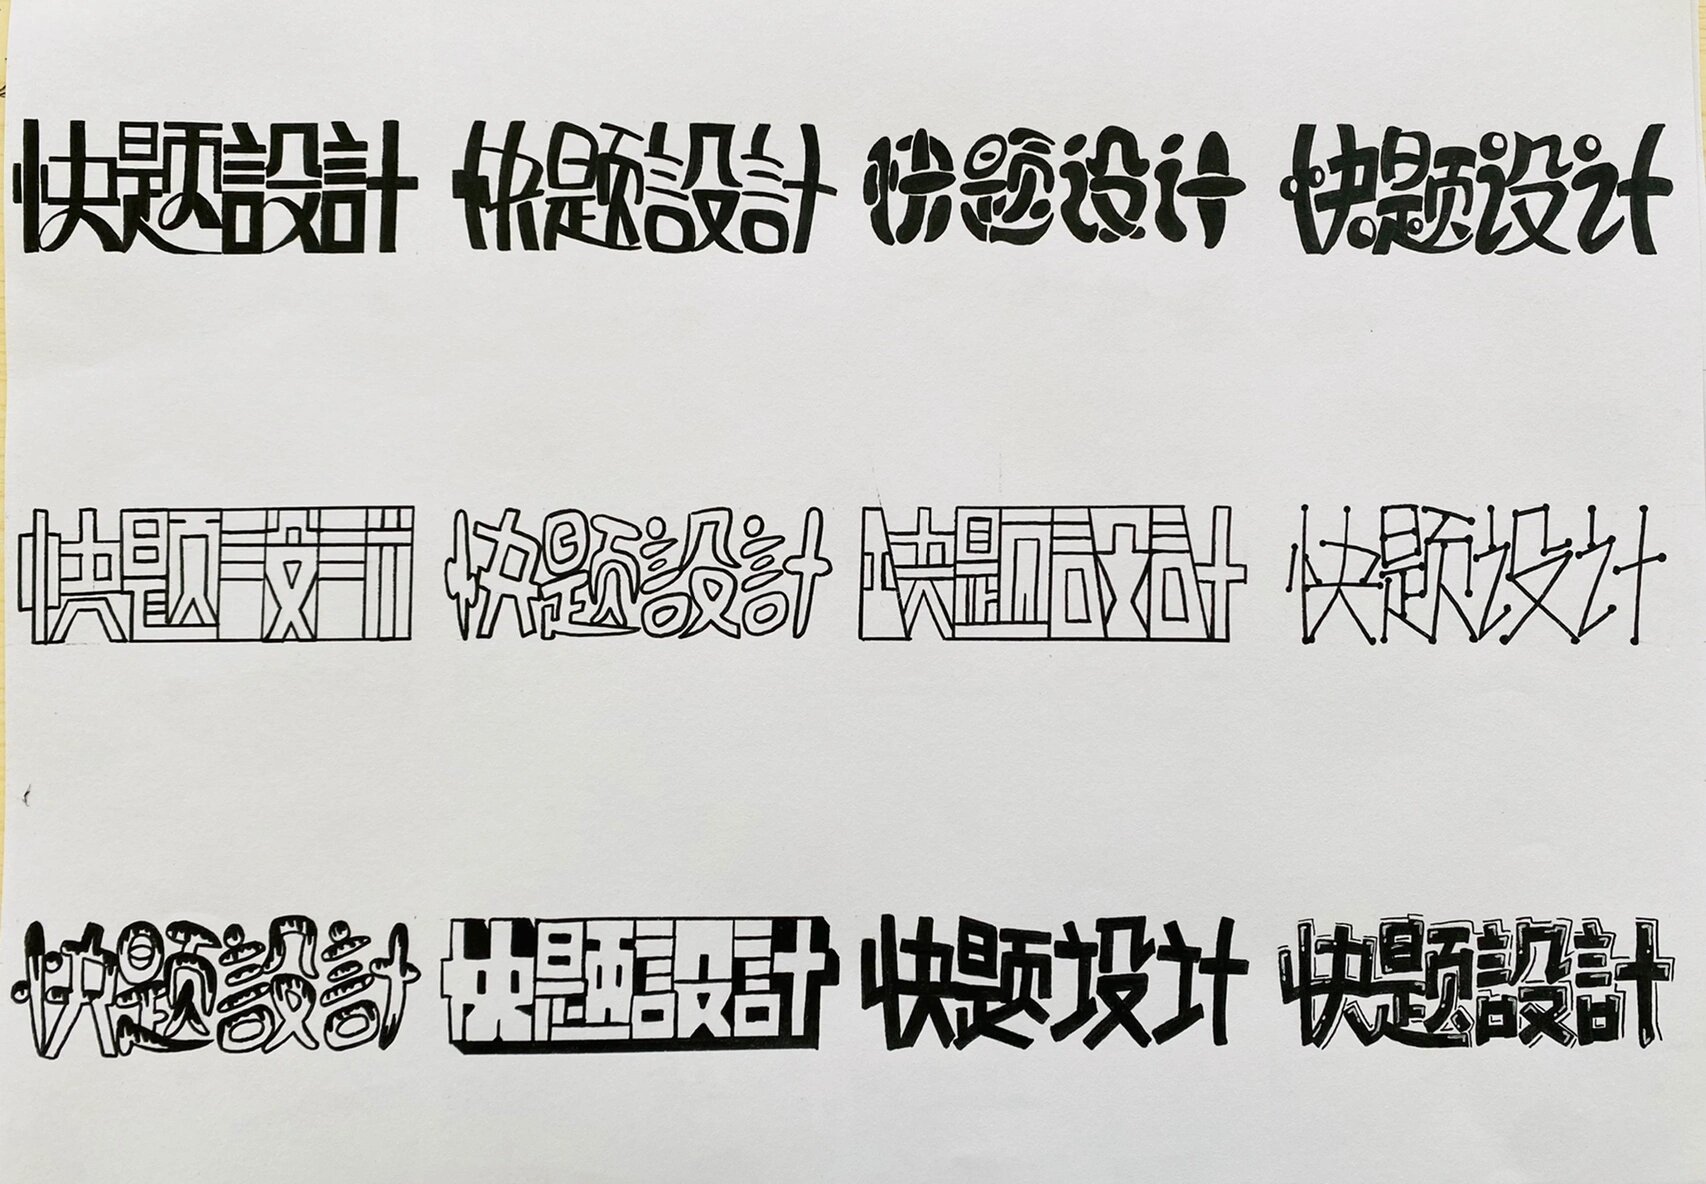 快题設計 快题設計 快题设计 快题设计
快题設計 快题設計 快题設計 快题设计
快题設計 快题設計 快题设计 快题設計